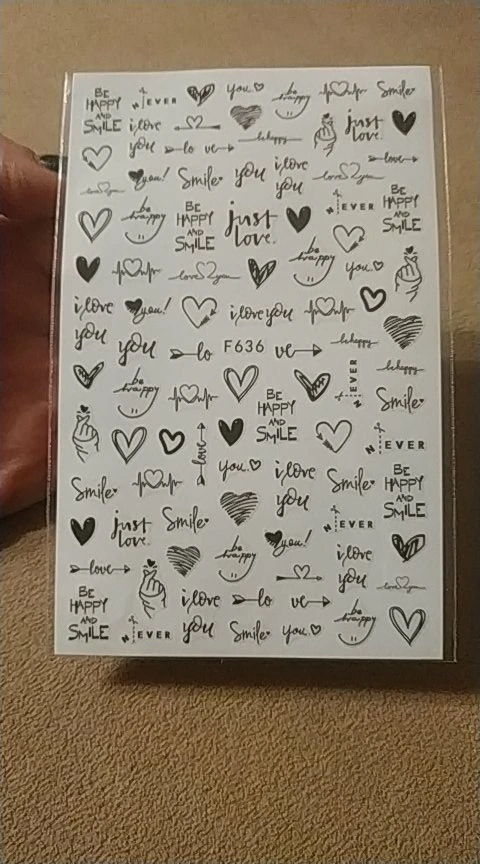 BE
HAPPY
AND
SMILE
NEVER
you
be
happy
Smile
i love
you
be happy
just
love.
lo ve
love
love you
you!
Smile
you
i love
you
love you
NEVER
be
happy
BE
HAPPY
AND
SMILE
just
love.
BE
HAPPY
AND
SMILE
love you
be
happy
you
i love
you
you!
you
i love you
lo
F636
ve
be happy
be happy
be
happy
NEVER
BE
HAPPY
AND
SMILE
Smile
love
NEVER
Smile
you
i love
you
Smile
BE
HAPPY
AND
SMILE
just
love.
Smile
NEVER
love
be
happy
you!
i love
you
love you
BE
HAPPY
AND
SMILE
NEVER
i love
you
lo ve
Smile
you
be
happy